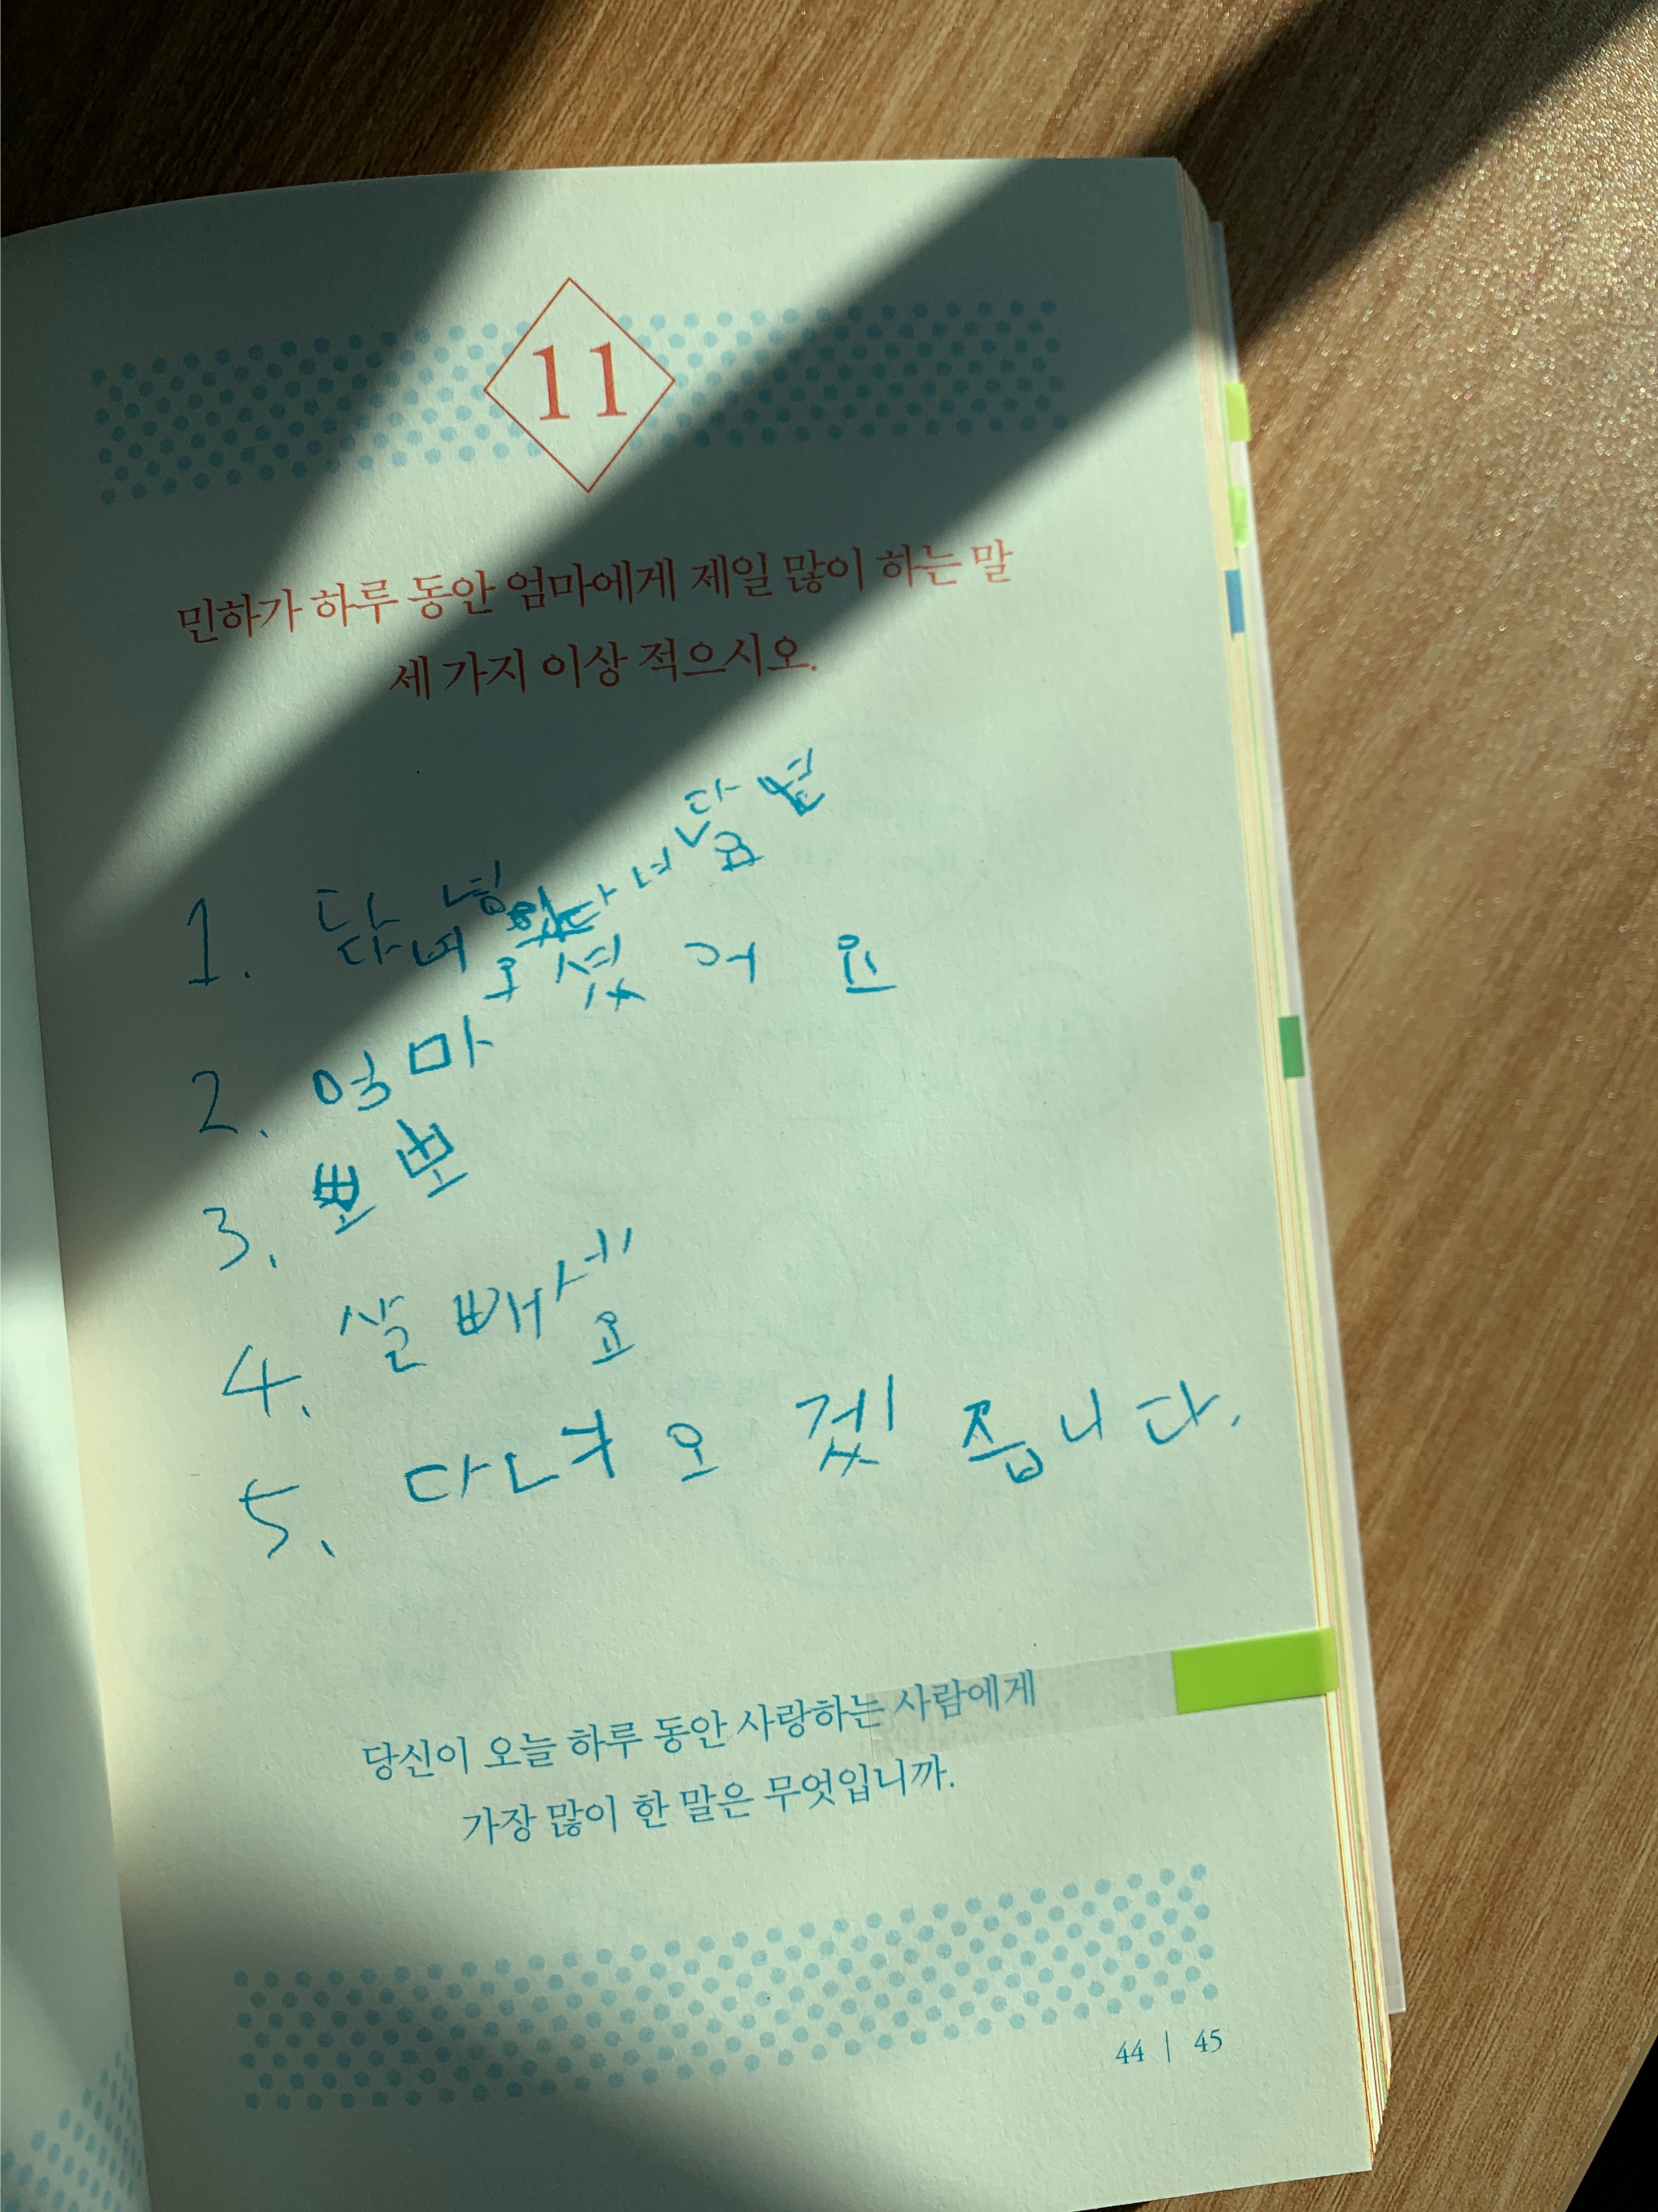 11
민하가 하루 동안 엄마에게 제일 많이 하는 말
세 가지 이상 적으시오.
1.
다녀 오셨어요
2. 엄마
3. 뽀뽀
4. 살 빼세
요
5. 다녀오겠습니다.
당신이 오늘 하루 동안 사랑하는 사람에게
가장 많이 한 말은 무엇입니까.
44 | 45